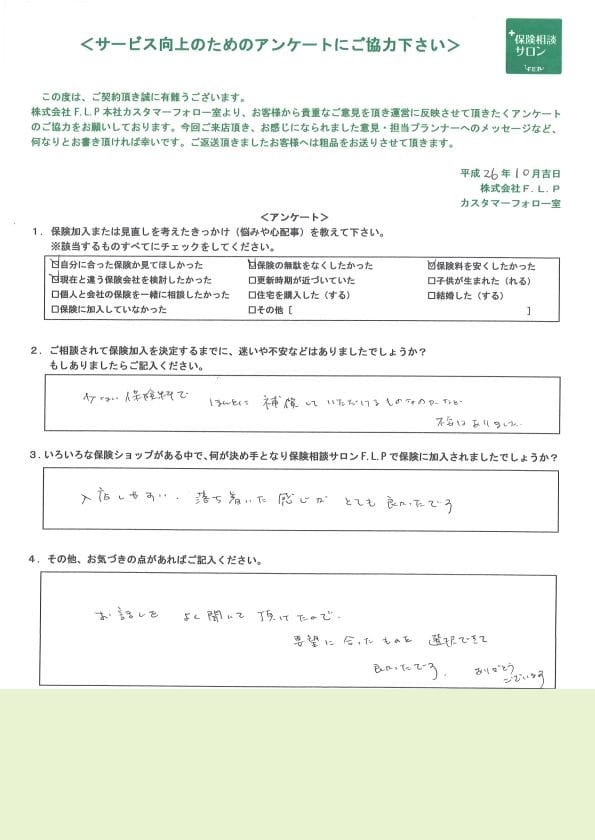 ＜サービス向上のためのアンケートにご協力下さい＞
保険相談
サロン
F.L.P
この度は、ご契約頂き誠に有難うございます。
株式会社F.L.P本社カスタマーフォロー室より、お客様から貴重なご意見を頂き運営に反映させて頂きたくアンケート
のご協力をお願いしております。今回ご来店頂き、お感じになられました意見・担当プランナーへのメッセージなど、
何なりとお書き頂ければ幸いです。ご返送頂きましたお客様へは粗品をお送りさせて頂きます。
平成26年10月吉日
株式会社F.L.P
カスタマーフォロー室
＜アンケート＞
1．保険加入または見直しを考えたきっかけ（悩みや心配事）を教えて下さい。
※該当するものすべてにチェックをしてください。
☑自分に合った保険か見てほしかった ☑保険の無駄をなくしたかった ☑保険料を安くしたかった
☑現在と違う保険会社を検討したかった □更新時期が近づいていた □子供が生まれた（れる）
□個人と会社の保険を一緒に相談したかった □住宅を購入した（する） □結婚した（する）
□保険に加入していなかった □その他［ ］
2．ご相談されて保険加入を決定するまでに、迷いや不安などはありましたでしょうか？
もしありましたらご記入ください。
少ない保険料で ほんとに補償していただけるものなのかなど
不安はありました。
3．いろいろな保険ショップがある中で、何が決め手となり保険相談サロンF.L.Pで保険に加入されましたでしょうか？
入店しやすい、落ち着いた感じがとても良かったです
4．その他、お気づきの点があればご記入ください。
お話しをよく聞いて頂けたので、
要望に合ったものを選択できて
良かったです。ありがとう
ございます